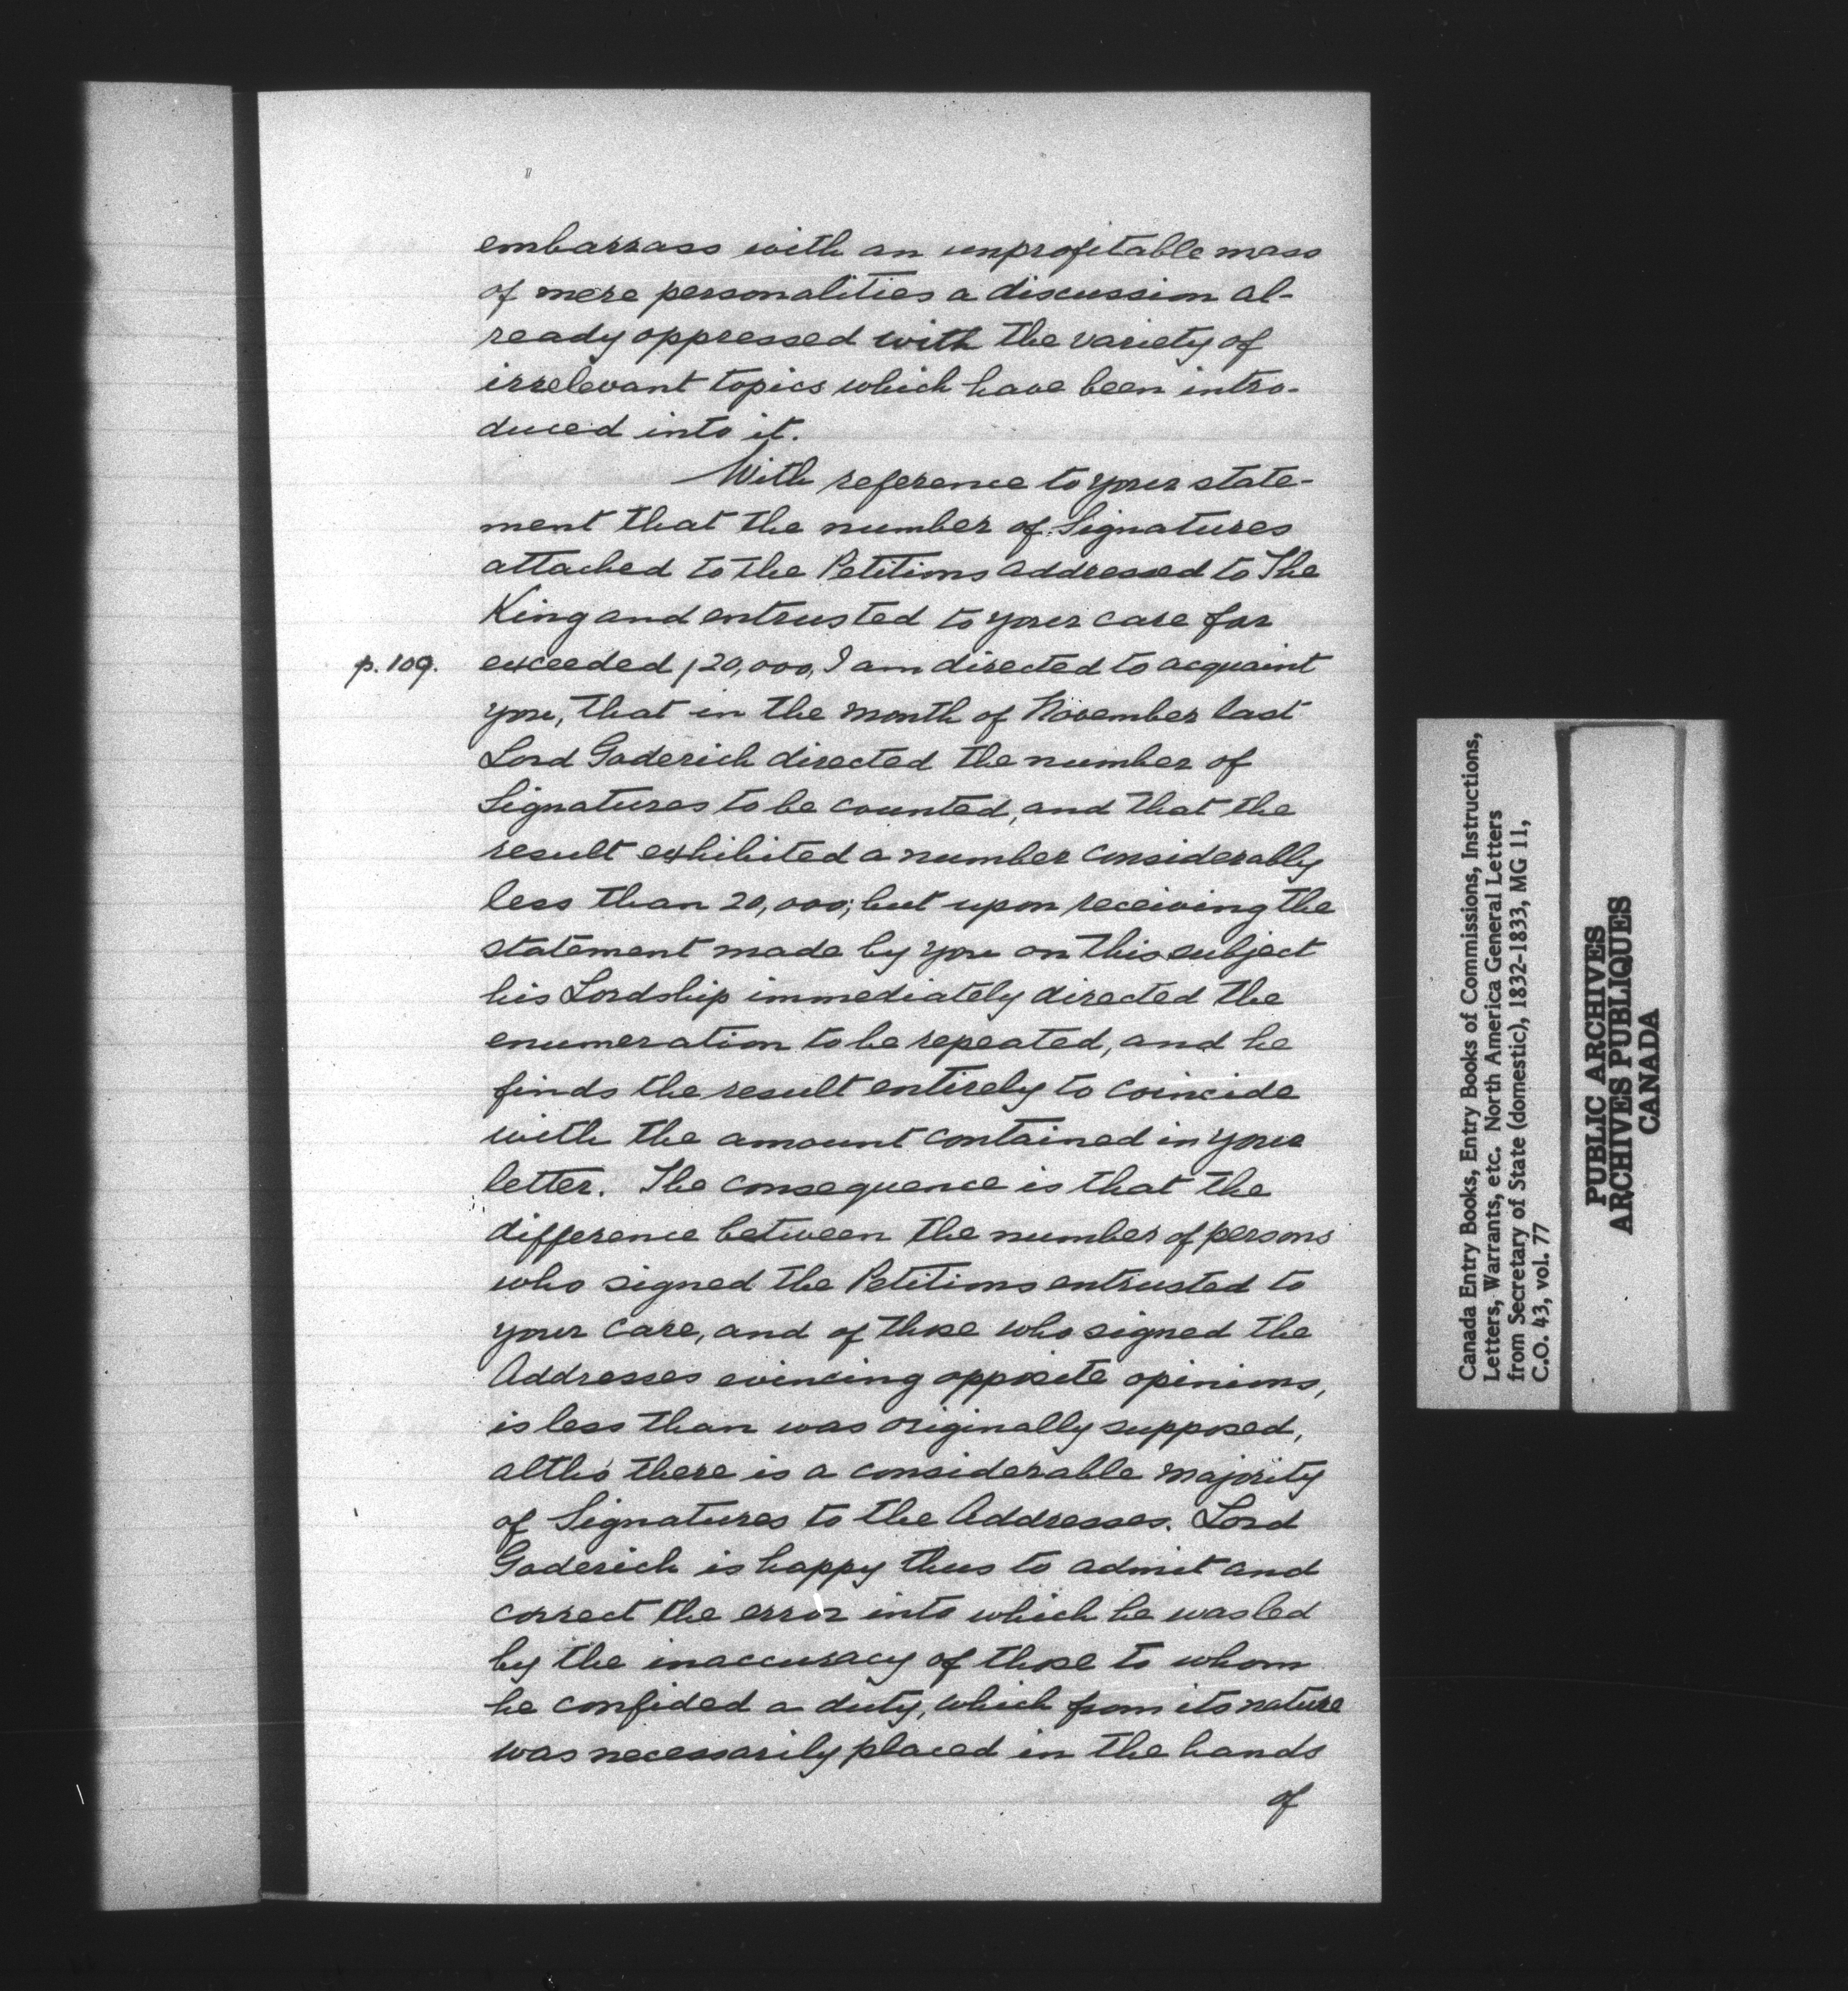 embarrass with an unprofitable mass
of mere personalities a discussion al-
ready oppressed with the variety of
irrelevant topics which have been intro-
duced into it.
With reference to your state-
ment that the number of Signatures
attached to the Petitions addressed to The
King and entrusted to your care far
p. 109. exceeded /20,000, I am directed to acquaint
you, that in the month of November last
Lord Goderich directed the number of
Signatures to be counted, and that the
result exhibited a number considerably
less than 20,000; but upon receiving the
statement made by you on this subject
his Lordship immediately directed the
enumeration to be repeated, and he
finds the result entirely to coincide
with the amount contained in your
letter. The consequence is that the
difference between the number of persons
who signed the Petitions entrusted to
your care, and of those who signed the
Addresses evincing opposite opinions,
is less than was originally supposed,
altho' there is a considerable majority
of Signatures to the Addresses. Lord
Goderich is happy thus to admit and
correct the error into which he was led
by the inaccuracy of those to whom
he confided a duty, which from its nature
was necessarily placed in the hands
of
Canada Entry Books, Entry Books of Commissions, Instructions,
Letters, Warrants, etc. North America General Letters
from Secretary of State (domestic), 1832-1833, MG 11,
C.O. 43, vol. 77
PUBLIC ARCHIVES
ARCHIVES PUBLIQUES
CANADA